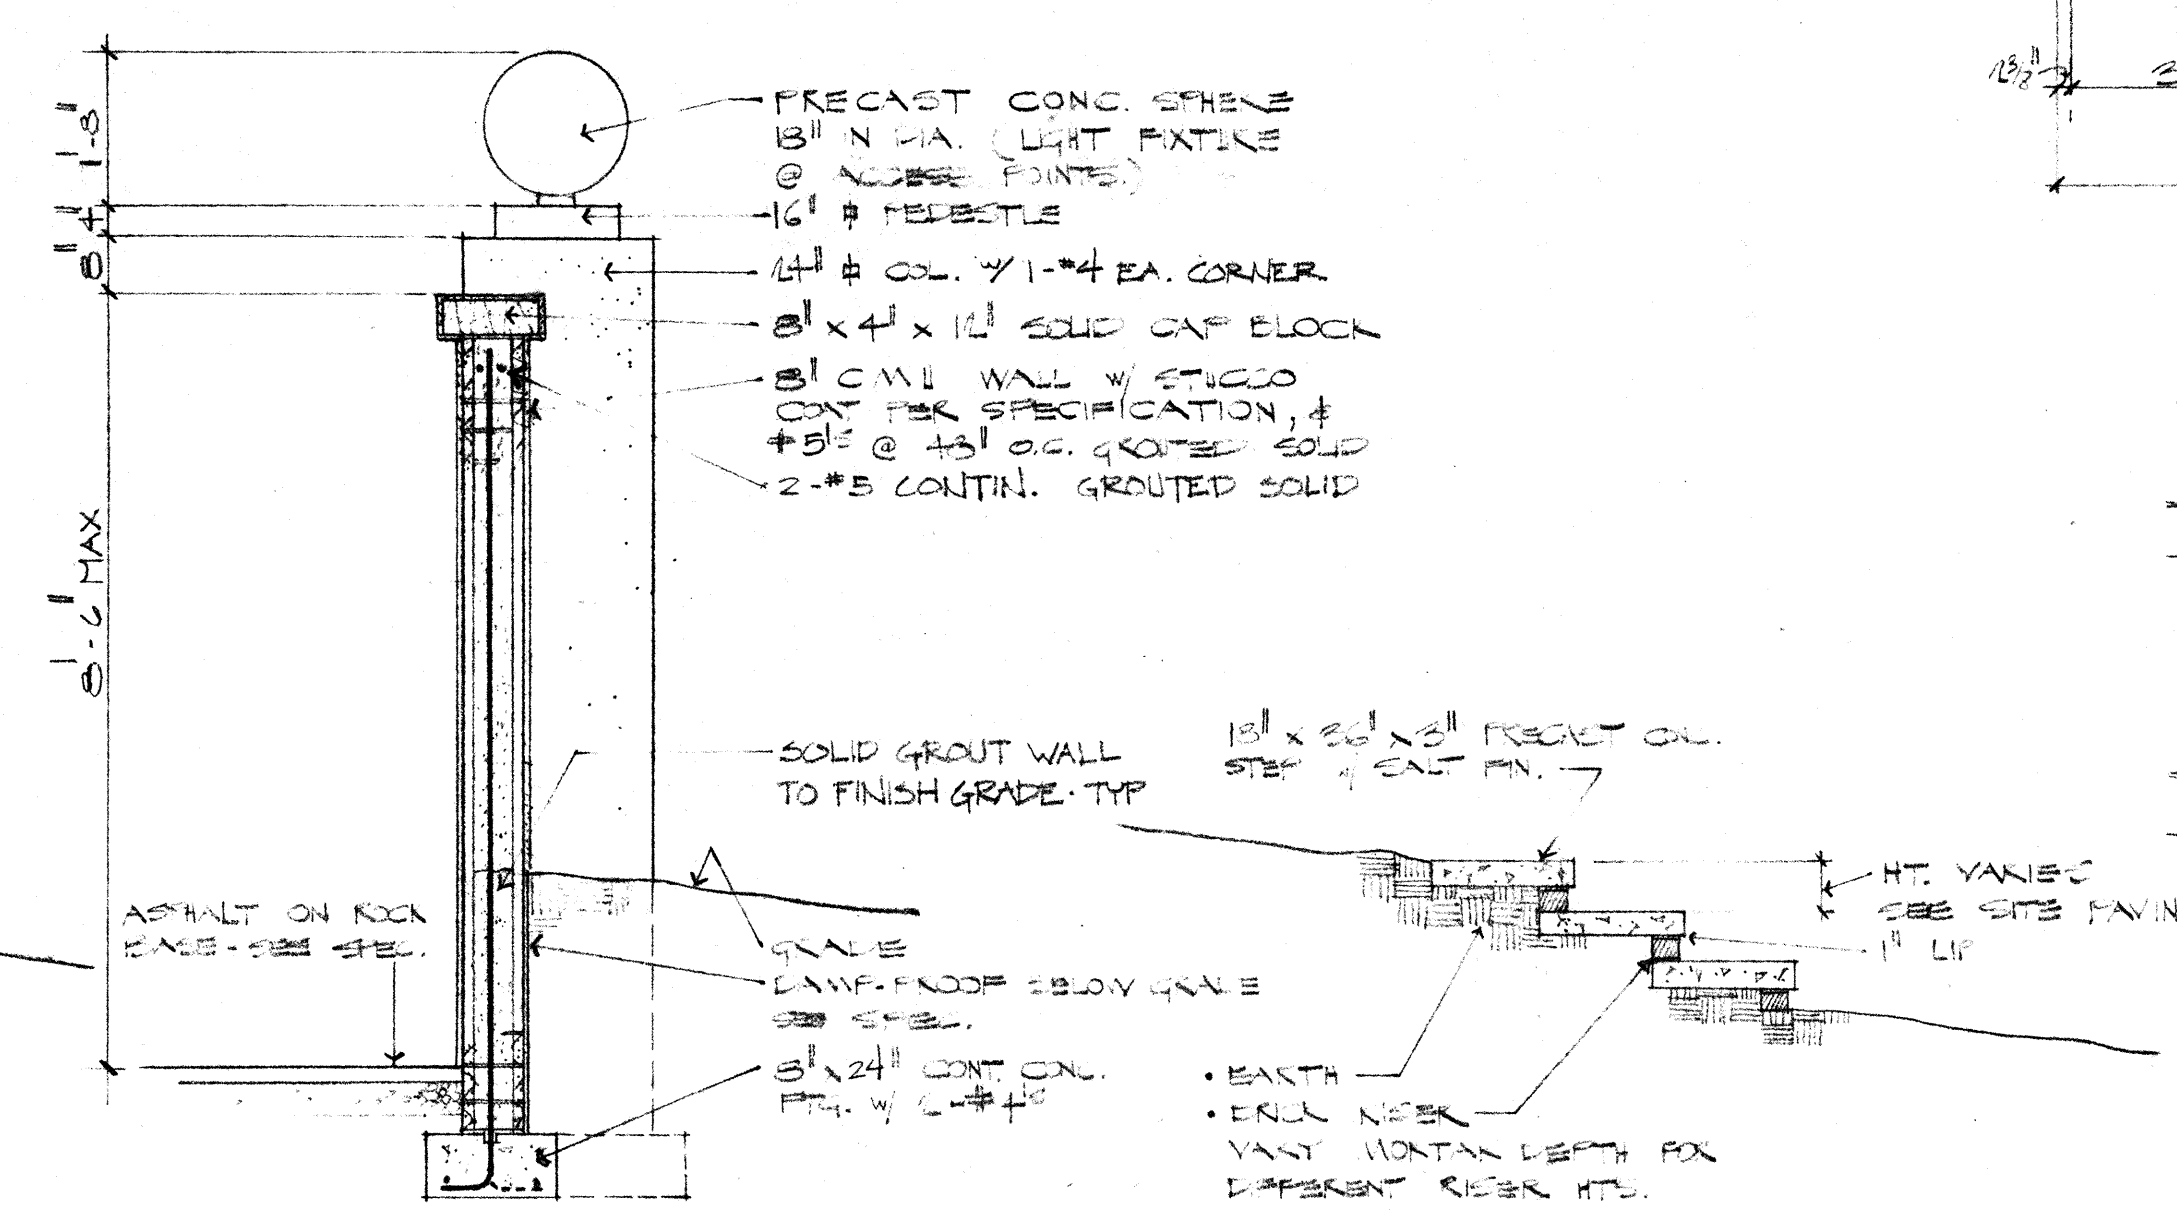 1'-8"
4"
8"
8'-6" MAX
PRECAST CONC. SPHERE
18" IN DIA. (LIGHT FIXTURE
@ ACCESS POINTS.)
16" ⌷ PEDESTLE
24" ⌷ COL. W/ 1-#4 EA. CORNER
8" x 4" x 12" SOLID CAP BLOCK
8" CMU WALL W/ STUCCO
COAT PER SPECIFICATION, &
#5'S @ 48" O.C. GROUTED SOLID
2-#5 CONTIN. GROUTED SOLID
SOLID GROUT WALL
TO FINISH GRADE. TYP
ASPHALT ON ROCK
BASE - SEE SPEC.
GRADE
DAMP-PROOF BELOW GRADE
SEE SPEC.
8" x 24" CONT. CONC.
FTG. W/ 2-#4'S
18" x 36" x 3" PRECAST CONC.
STEP W/ SALT FIN.
HT. VARIES
SEE SITE PAVIN
1" LIP
• EARTH
• BRICK RISER
VARY MORTAR DEPTH FOR
DIFFERENT RISER HTS.